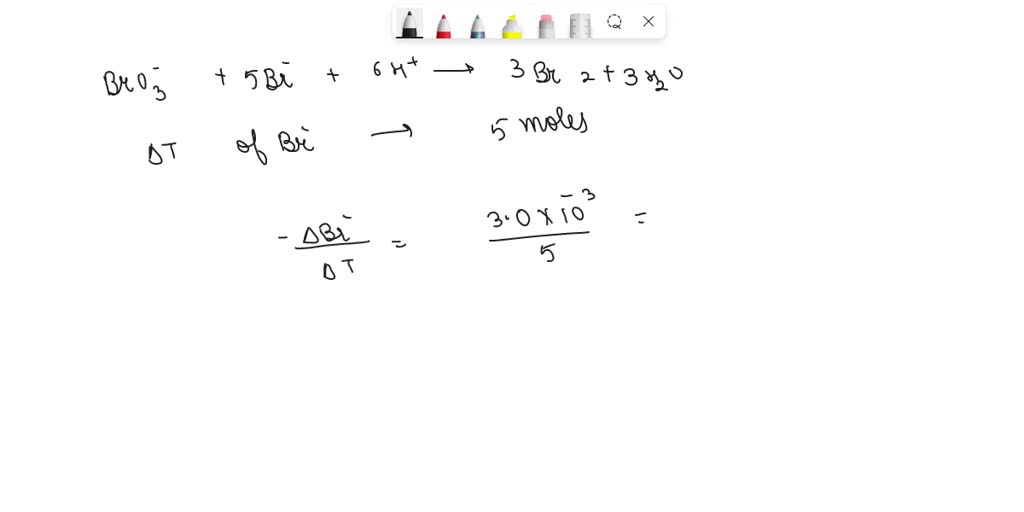 BrO₃⁻ + 5Br⁻ + 6H⁺ → 3Br₂ + 3H₂O
ΔT of Br⁻ → 5 moles
- ΔBr⁻ / ΔT = 3.0 × 10⁻³ / 5 =